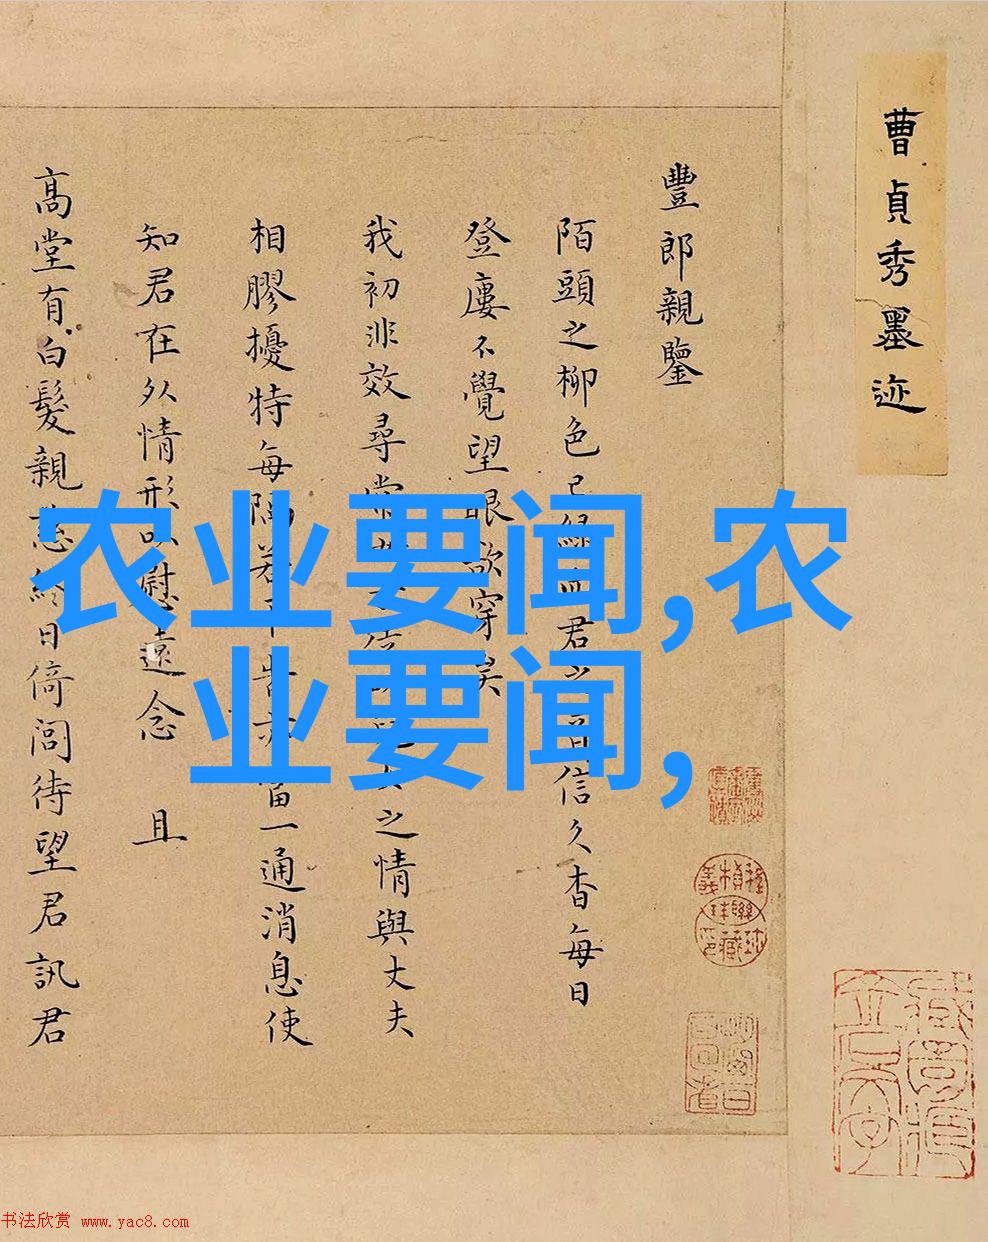 曹貞秀墨迹
豐郎親鑒
陌頭之柳色已綠 君之音信久杳每日
登廔不覺望眼欲穿矣
我初非效尋常 之情與丈夫
相膠擾特每 若 一通消息使
知君在外情形以慰遠念 且
高堂有白髮親慈終日倚閭待望君訊君
农业要闻,农
业要闻,
书法欣赏 www.yac8.com